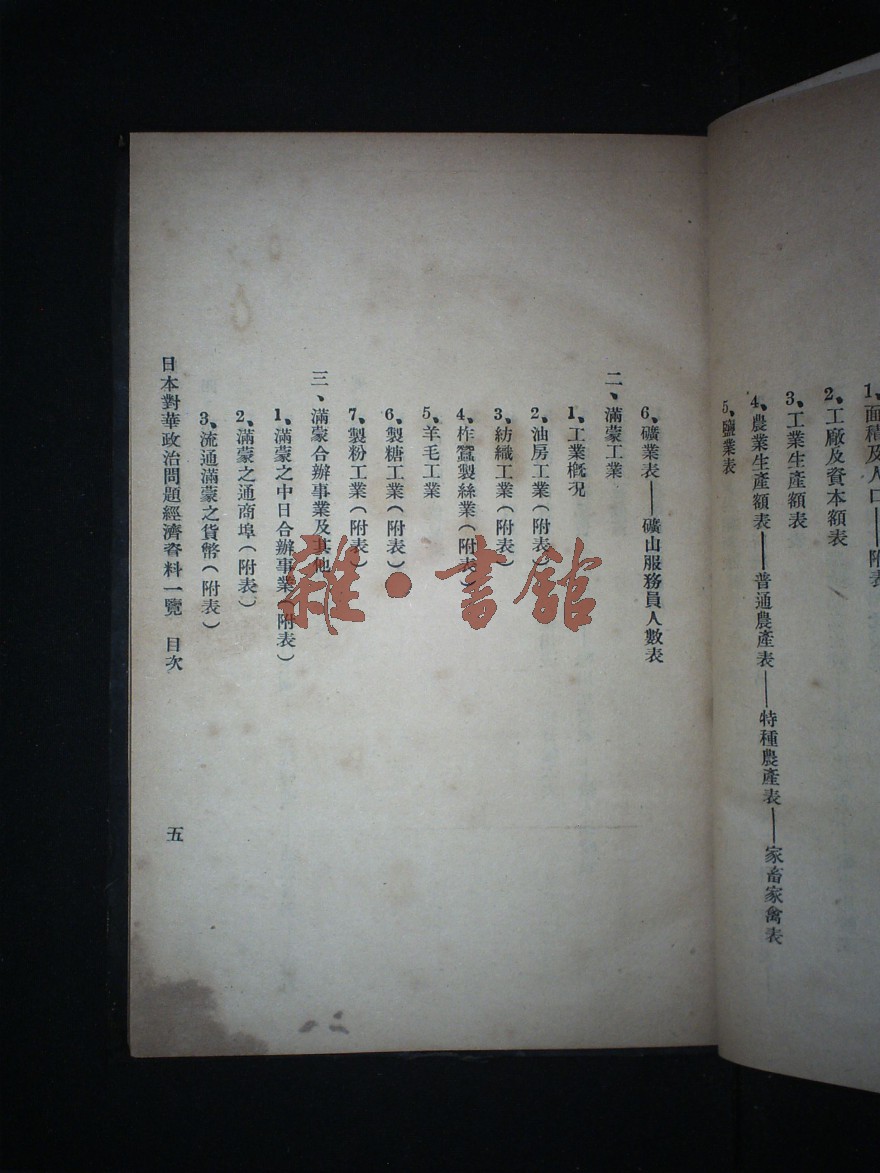 1、面積及人口——附表
2、工廠及資本額表
3、工業生產額表
4、農業生產額表——普通農產表——特種農產表——家畜家禽表
5、鹽業表
6、礦業表——礦山服務員人數表
二、滿蒙工業
1、工業概況
2、油房工業(附表)
3、紡織工業(附表)
4、柞蠶製絲業(附表)
5、羊毛工業
6、製糖工業(附表)
7、製粉工業(附表)
三、滿蒙合辦事業及其他
1、滿蒙之中日合辦事業(附表)
2、滿蒙之通商埠(附表)
3、流通滿蒙之貨幣(附表)
日本對華政治問題經濟資料一覽 目次
五
雜·書館